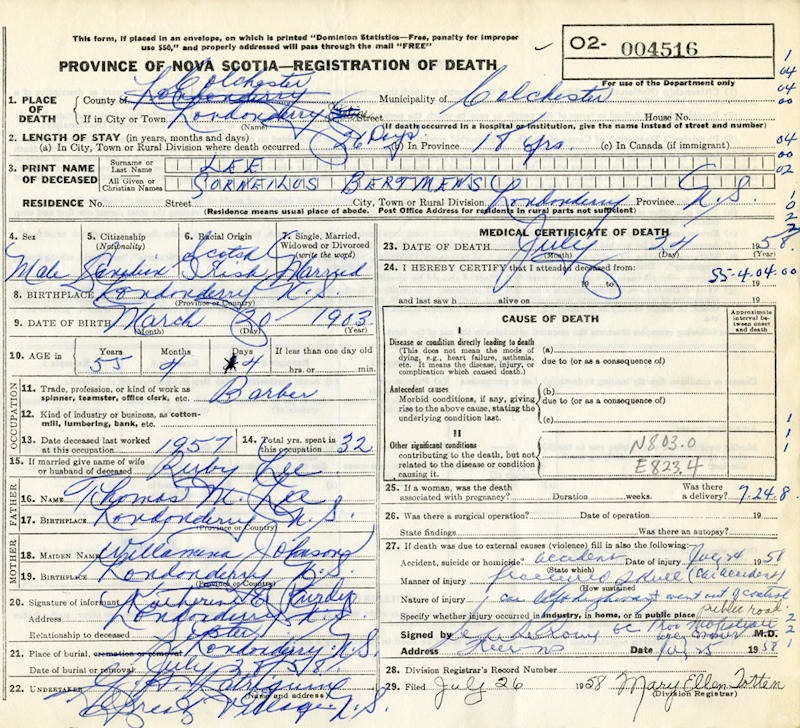 This form, if placed in an envelope, on which is printed "Dominion Statistics—Free, penalty for improper
use $50," and properly addressed will pass through the mail "FREE"
O2- 004516
PROVINCE OF NOVA SCOTIA—REGISTRATION OF DEATH
For use of the Department only
1. PLACE OF DEATH
County of Londonderry Colchester Municipality of Colchester
If in City or Town Londonderry Street House No.
(Name) (If death occurred in a hospital or institution, give the name instead of street and number)
2. LENGTH OF STAY (in years, months and days)
(a) In City, Town or Rural Division where death occurred 26 Days (b) In Province 18 yrs. (c) In Canada (if immigrant)
3. PRINT NAME OF DECEASED
Surname or Last Name LEE
All Given or Christian Names CORNEILUS BERTMENS
RESIDENCE No. Street City, Town or Rural Division Londonderry Province N.S.
(Residence means usual place of abode. Post Office Address for residents in rural parts not sufficient)
4. Sex 5. Citizenship (Nationality) 6. Racial Origin 7. Single, Married, Widowed or Divorced (write the word)
Male Scotch Irish Married
8. BIRTHPLACE Londonderry N.S.
(Province or Country)
9. DATE OF BIRTH March 30 1903
(Month) (Day) (Year)
10. AGE in Years Months Days If less than one day old
55 4 4 hrs. or min.
OCCUPATION
11. Trade, profession, or kind of work as spinner, teamster, office clerk, etc. Barber
12. Kind of industry or business, as cotton-mill, lumbering, bank, etc.
13. Date deceased last worked at this occupation 1957 14. Total yrs. spent in this occupation 32
15. If married give name of wife or husband of deceased Ruby Lee
FATHER
16. NAME Thomas M. Lee
17. BIRTHPLACE Londonderry N.S.
(Province or Country)
MOTHER
18. MAIDEN NAME Willamina Johnson
19. BIRTHPLACE Londonderry N.S.
(Province or Country)
20. Signature of informant Katherine E. Purdy
Address Londonderry N.S.
Relationship to deceased Sister
21. Place of burial, cremation or removal Londonderry N.S.
Date of burial or removal July 28 58
22. UNDERTAKER
(Name and address)
Great Village N.S.
MEDICAL CERTIFICATE OF DEATH
23. DATE OF DEATH July 24 1958.
(Month) (Day) (Year)
24. I HEREBY CERTIFY that I attended deceased from:
19 to 19
55-4.04.00
and last saw h alive on 19
CAUSE OF DEATH
Approximate interval between onset and death
I
Disease or condition directly leading to death (a)
(This does not mean the mode of dying, e.g., heart failure, asthenia, etc. It means the disease, injury, or complication which caused death.)
due to (or as a consequence of)
Antecedent causes (b)
Morbid conditions, if any, giving rise to the above cause, stating the underlying condition last.
due to (or as a consequence of)
(c)
II
Other significant conditions
contributing to the death, but not related to the disease or condition causing it.
N803.0
E823.4
25. If a woman, was the death associated with pregnancy? Duration weeks. Was there a delivery? 7-24.8
26. Was there a surgical operation? Date of operation 19
State findings Was there an autopsy?
27. If death was due to external causes (violence) fill in also the following:
Accident, suicide or homicide? accident Date of injury July 24 1958
(State which)
Manner of injury fractured skull (car accident)
(How sustained)
Nature of injury car left highway & went out of control
Specify whether injury occurred in industry, in home, or in public place public road
Signed by M.D.
Address Date July 25 1958
28. Division Registrar's Record Number
29. Filed July 26 1958 Mary Ellen Totten
(Division Registrar)